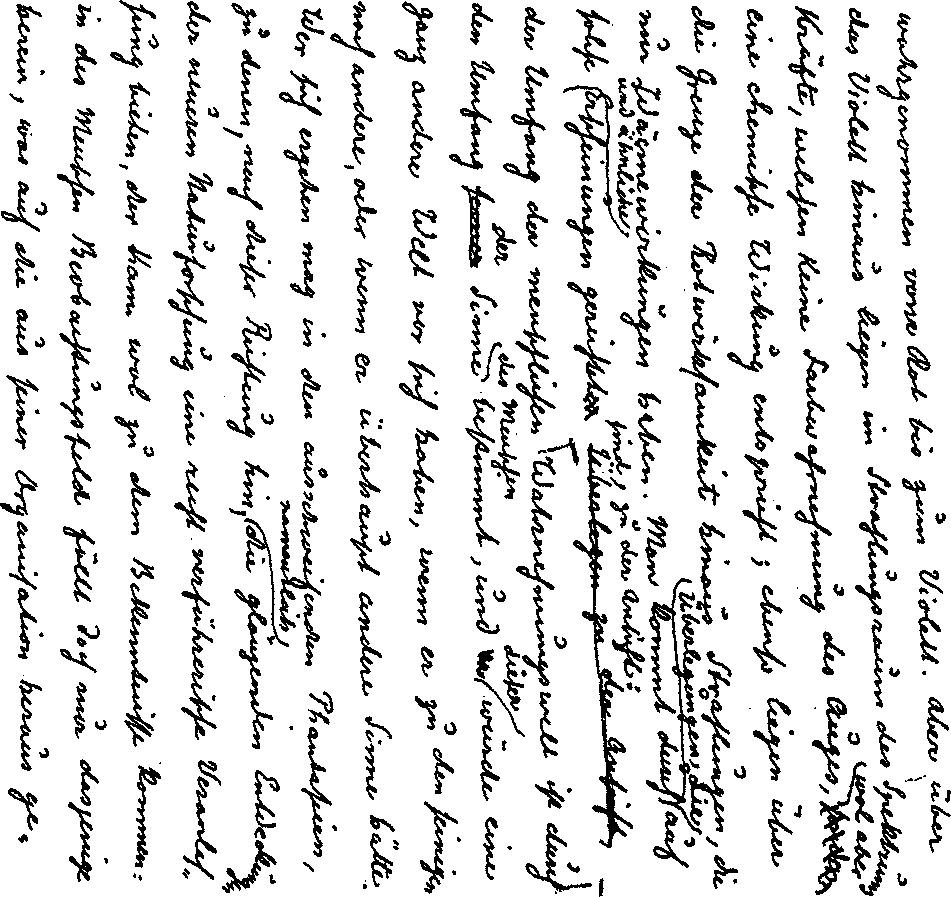 wahrgenommen vom Rot bis zum Violett. Aber über
das Violett hinaus liegen im Strahlungsraum des Spektrums
Kräfte, welchen keine Farbwahrnehmung des Auges, wol aber
eine chemische Wirkung entspricht; ebenso liegen über
die Grenze der Rotwirksamkeit hinaus Strahlungen, die
nur Wärmewirkungen haben. Man kommt durch Überlegungen, die auf
solche und ähnliche Erscheinungen gerichtet sind, zu der Ansicht: Überlegungen zu der Ansicht,
der Umfang der menschlichen Wahrnehmungswelt ist durch
den Umfang der Sinne des Menschen bestimmt, und dieser würde eine
ganz andere Welt vor sich haben, wenn er zu den seinigen
noch andere, oder wenn er überhaupt andere Sinne hätte.
Wer sich ergehen mag in den ausschweifenden Phantasien,
zu denen, nach dieser Richtung hin, namentlich die glänzenden Entdeckungen
der neueren Naturforschung eine recht verführerische Veranlas=
sung bieten, der kann wol zu dem Bekenntnisse kommen:
in des Menschen Beobachtungsfeld fällt doch nur dasjenige
herein, was auf die aus seiner Organisation heraus ge=